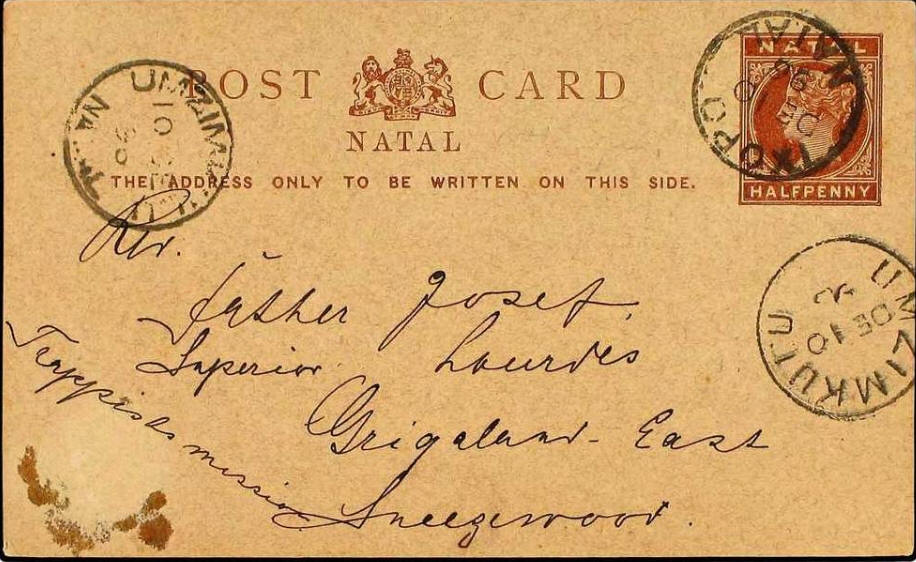 POST CARD
NATAL
THE ADDRESS ONLY TO BE WRITTEN ON THIS SIDE.
NATAL
HALFPENNY
IXOPO
NATAL
DE
UMZIMKULU
UMZIMKULU
DE 10
Rev.
Father Josef
Superior Lourdes
Grigaland-East
Sneezewood.
Trappists mission